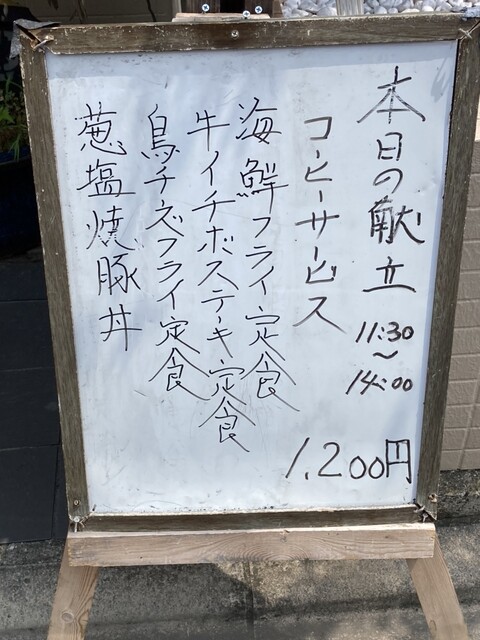 本日の献立
11:30
〜
14:00
1,200円
コーヒーサービス
海鮮フライ定食
牛イチボステーキ定食
鳥チーズフライ定食
葱塩焼豚丼